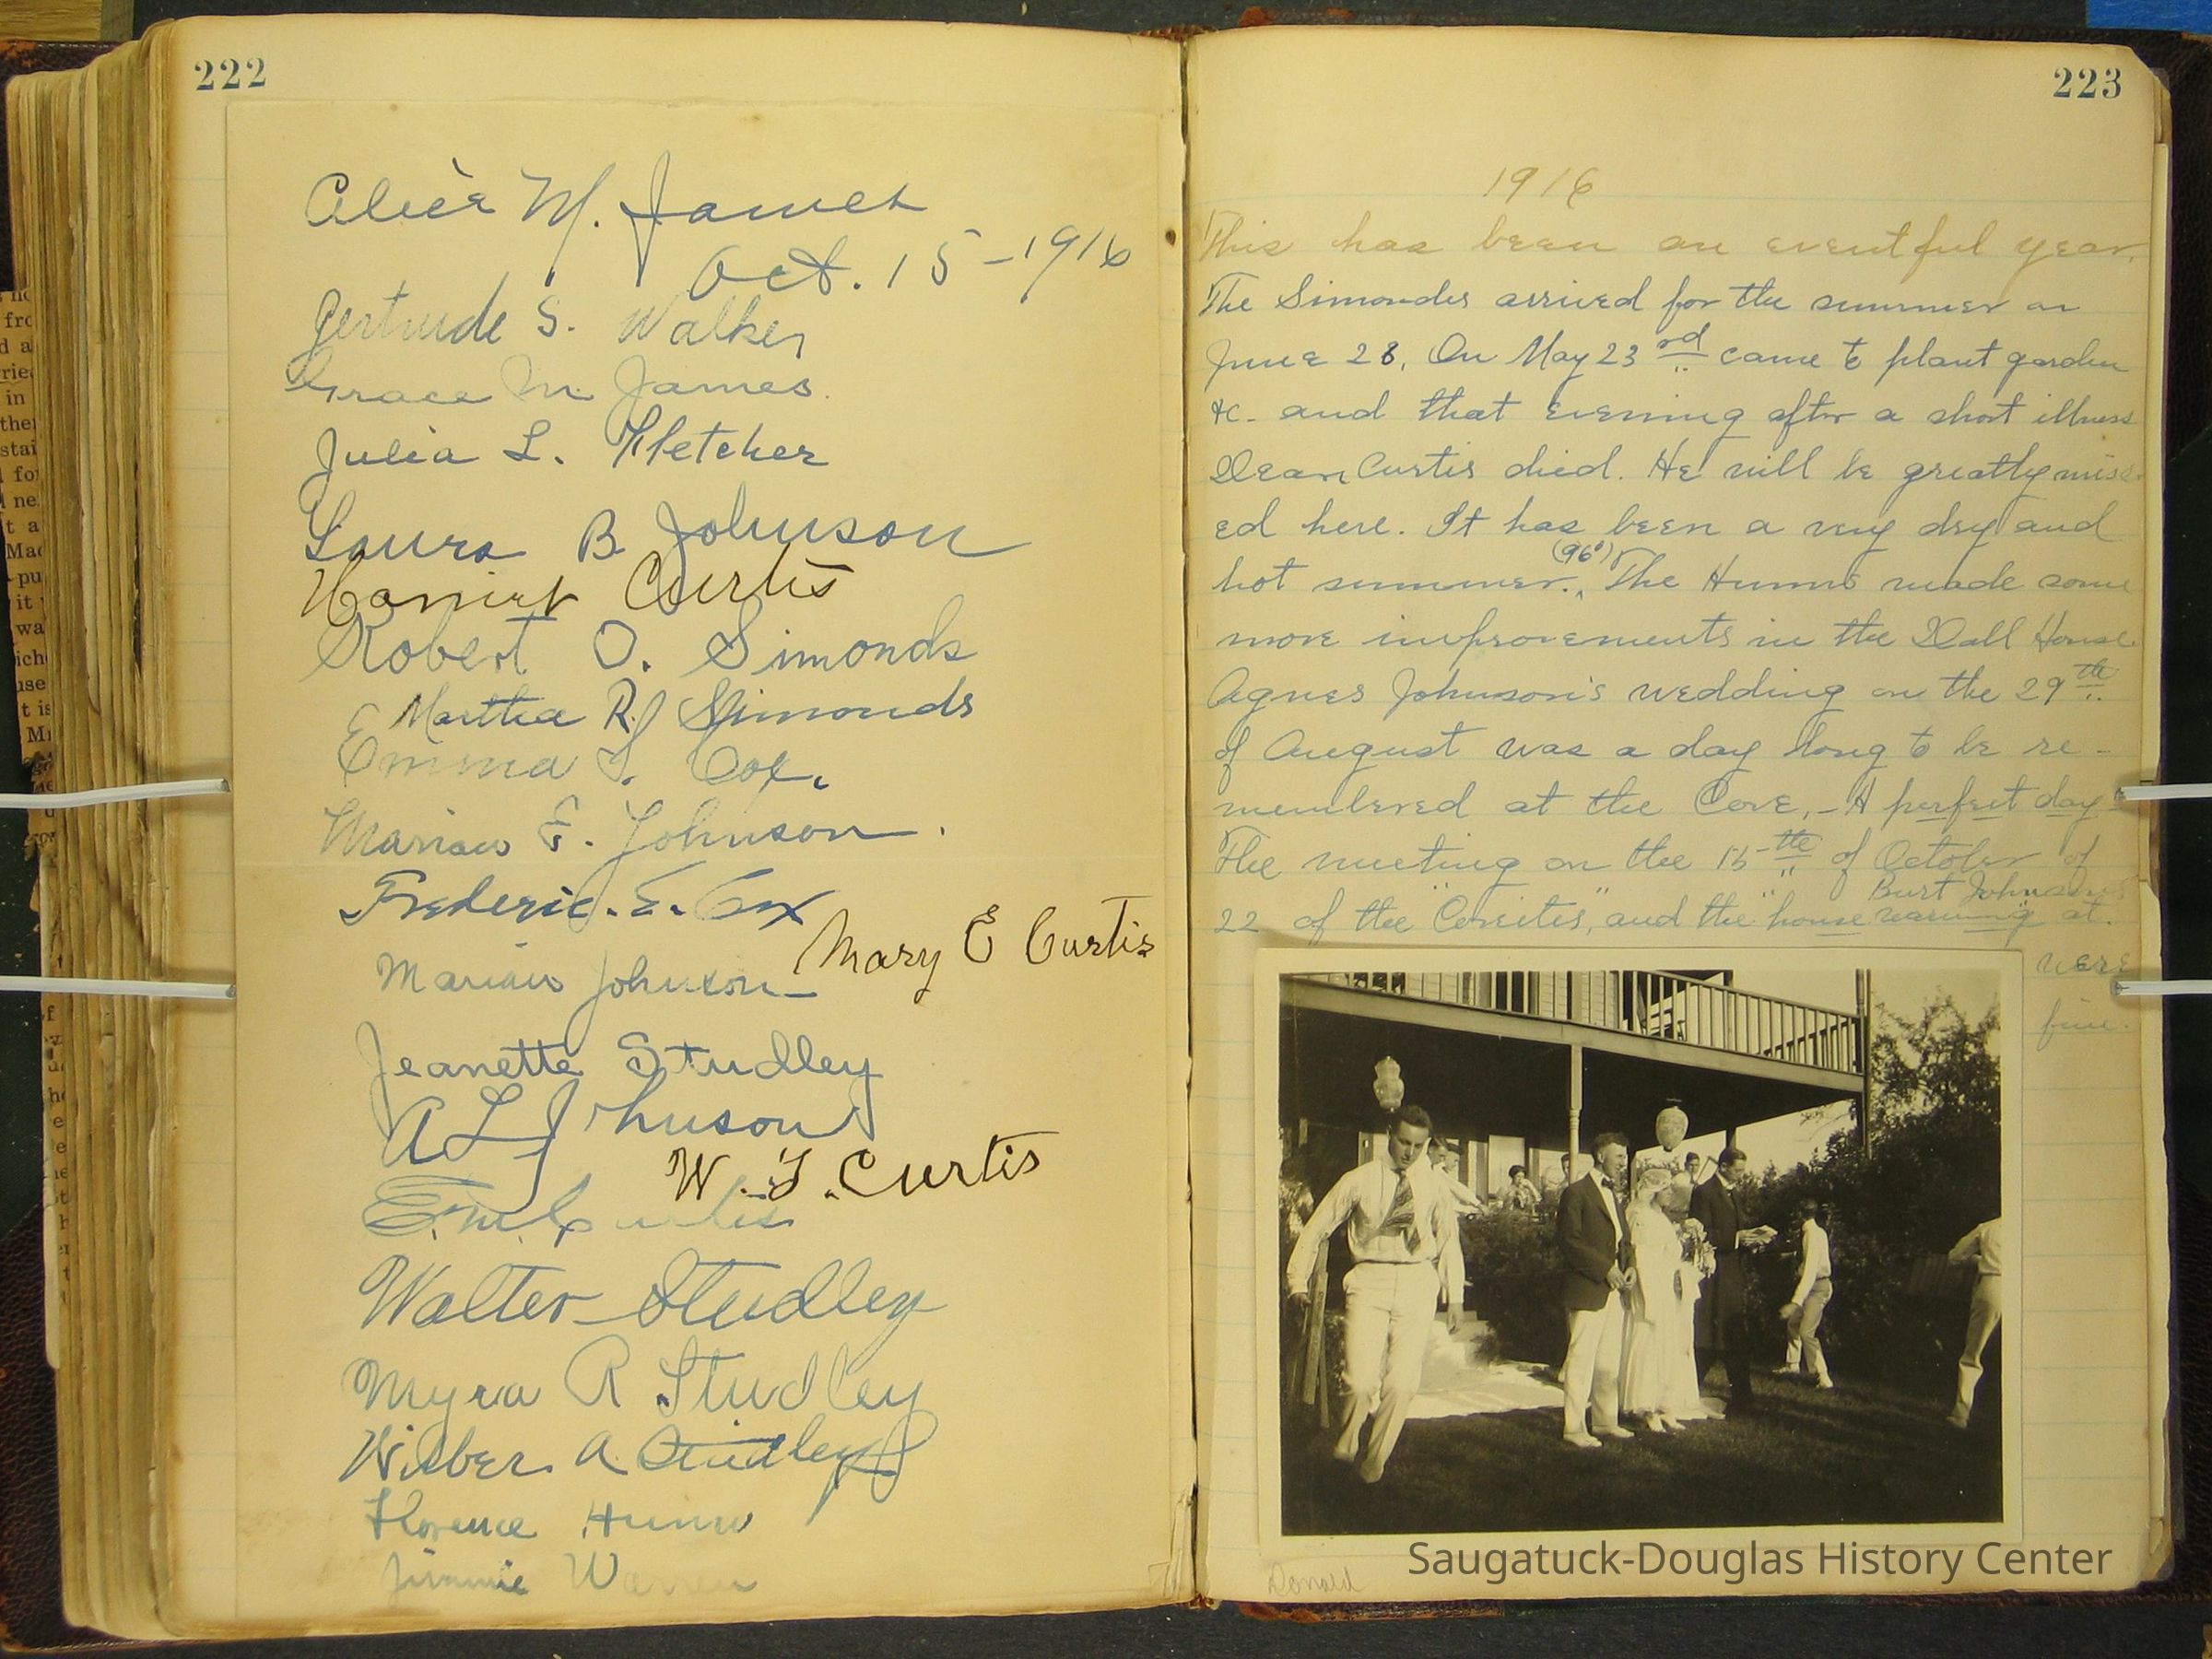 222
Alice M. James
Oct. 15-1916
Gertrude S. Walker
Grace M James.
Julia L. Fletcher
Laura B Johnson
Harriet Curtis
Robert O. Simonds
Martha R. Simonds
Emma L. Cox.
Marian E. Johnson.
Frederic. E. Cox
Mary E Curtis
Marian Johnson
Jeanette Studley
A L Johnson
W. F. Curtis
E. M. Curtis
Walter Studley
Myra R Studley
Wilber A Studley
Florence Hunn
Jimmie Warren
223
1916
This has been an eventful year.
The Simondes arrived for the summer on
June 28. On May 23rd came to plant garden
&c- and that evening after a short illness
Dean Curtis died. He will be greatly miss-
ed here. It has been a very dry and
hot summer. (96°) The Hunns made some
more improvements in the Doll House
Agnes Johnson's wedding on the 29th
of August was a day long to be re-
membered at the Cove,- A perfect day.
The meeting on the 15th of October of
22 of the "Coveites", and the "house warming" at Burt Johnson's
were
fine.
Donald
Saugatuck-Douglas History Center